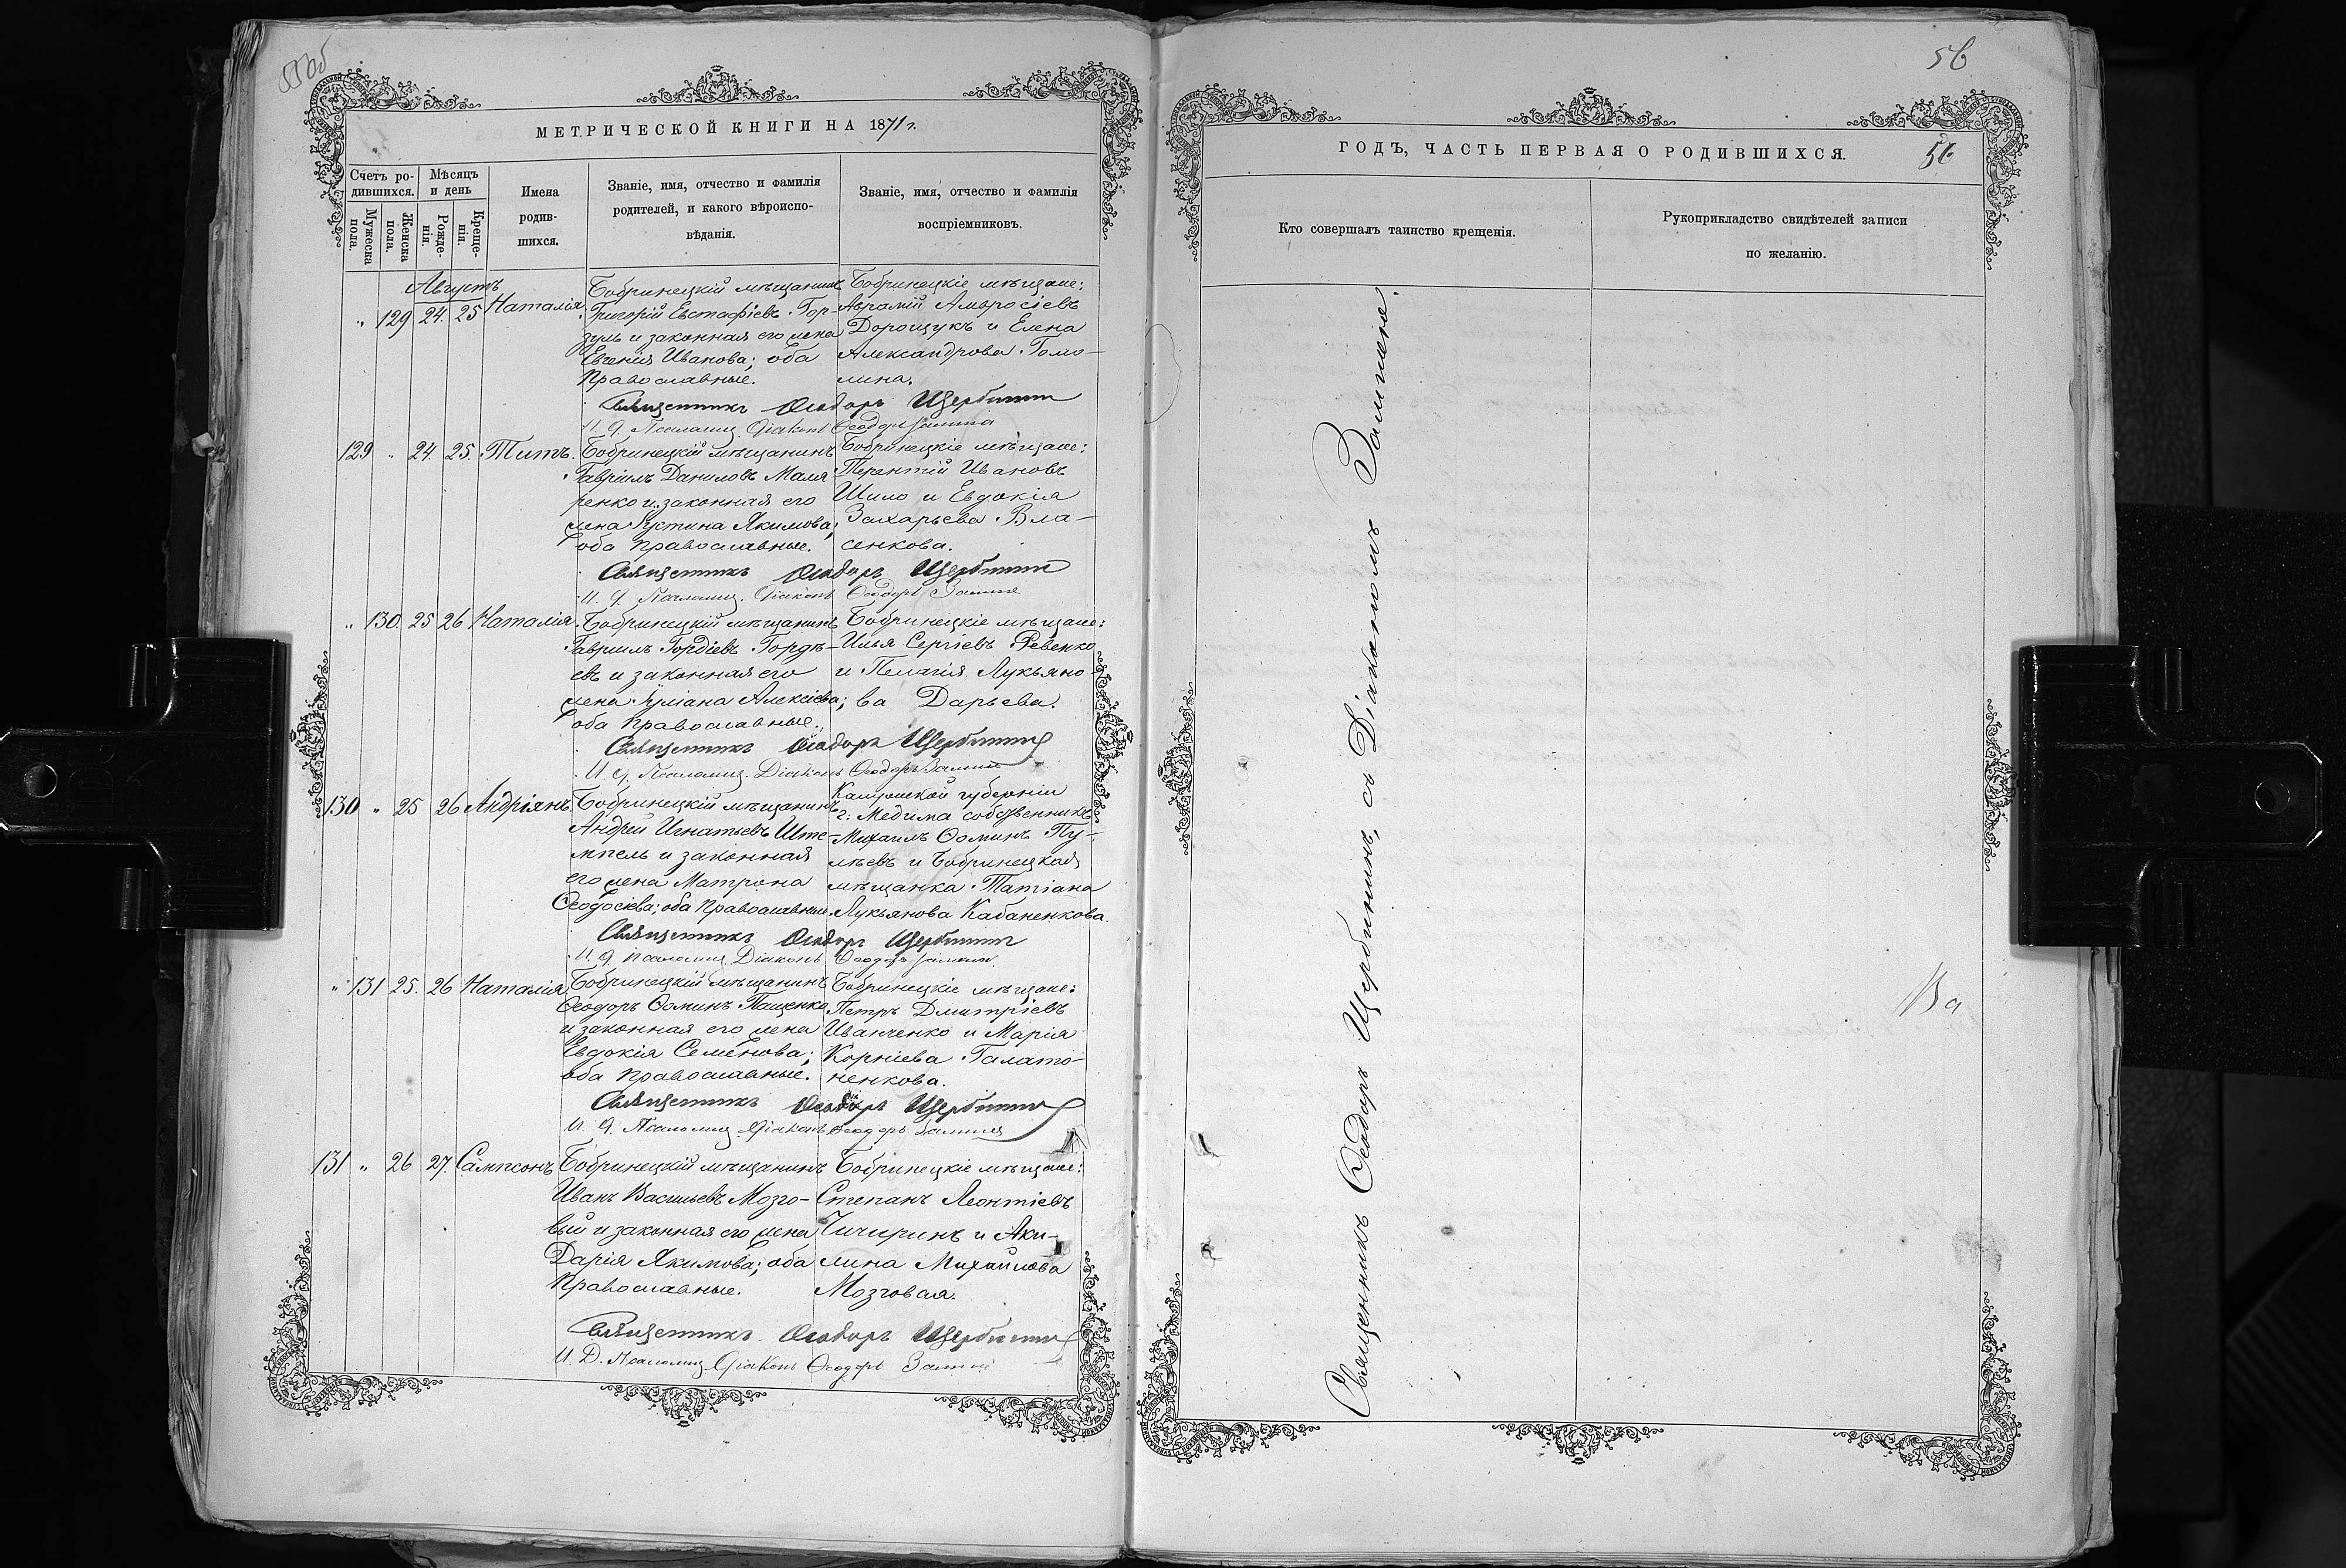 55об
МЕТРИЧЕСКОЙ КНИГИ НА 1871 г.
Счетъ ро-
дившихся.
Мѣсяцъ
и день
Мужеска
пола.
Женска
пола.
Рожде-
нія.
Креще-
нія.
Имена
родив-
шихся.
Званіе, имя, отчество и фамилія
родителей, и какого вѣроиспо-
вѣданія.
Званіе, имя, отчество и фамилія
воспріемниковъ.
Августъ
„ 129 24. 25 Наталія
Бобринецкій мѣщанинъ
Григорій Евстафіевъ Гор-
и законная его жена
Евгенія Иванова; оба
Православные.
Бобринецкіе мѣщане:
Аврамій Амвросіевъ
Дорощукъ и Елена
Александрова Гомо-
лина.
Священникъ Ѳеодоръ Щербининъ
И. д. Псаломщ. Діаконъ Ѳеодоръ
129 „ 24. 25. Титъ.
Бобринецкій мѣщанинъ
Гавріилъ Даниловъ Маля
ренко и законная его
жена Іустина Якимова;
оба Православные.
Бобринецкіе мѣщане:
Терентій Ивановъ
Шило и Евдокія
Захарьева Вла-
сенкова.
Священникъ Ѳеодоръ Щербининъ
И. д. Псаломщ. Діаконъ Ѳеодоръ
„ 130. 25 26 Наталія.
Бобринецкій мѣщанинъ
Гавріилъ Гордіевъ Гордѣ-
евъ и законная его
жена Іуліана Алексіева;
оба Православные.
Бобринецкіе мѣщане:
Илья Сергіевъ Ревенко
и Пелагія Лукьяно-
ва Дарьева.
Священникъ Ѳеодоръ Щербининъ
И. д. Псаломщ. Діаконъ Ѳеодоръ
130 „ 25 26 Андріянъ
Бобринецкій мѣщанинъ
Андрей Игнатьевъ Ште-
мпель и законная
его жена Матрона
Ѳеодосіева; оба Православные.
Калужской губерніи
г. Медыма собственникъ
Михаилъ Ѳоминъ Пу-
мѣевъ и Бобринецкая
мѣщанка Татіана
Лукьянова Кабаненкова.
Священникъ Ѳеодоръ Щербининъ
И. д. Псаломщ. Діаконъ Ѳеодоръ
„ 131 25. 26 Наталія
Бобринецкій мѣщанинъ
Ѳеодоръ Ѳоминъ Пащенко
и законная его жена
Евдокія Семенова;
оба Православные.
Бобринецкіе мѣщане:
Петръ Дмитріевъ
Иванченко и Марія
Корніева Галато-
ненкова.
Священникъ Ѳеодоръ Щербининъ
И. д. Псаломщ. Діаконъ Ѳеодоръ
131 „ 26 27. Сампсонъ
Бобринецкій мѣщанинъ
Иванъ Васильевъ Мозго-
вый и законная его жена
Дарія Якимова; оба
Православные.
Бобринецкіе мѣщане:
Степанъ Леонтіевъ
Чичиринъ и Аки-
лина Михайлова
Мозговая.
Священникъ Ѳеодоръ Щербининъ
И. Д. Псаломщ. Діаконъ Ѳеодоръ
56
ГОДЪ, ЧАСТЬ ПЕРВАЯ О РОДИВШИХСЯ.
56
Кто совершалъ таинство крещенія.
Рукоприкладство свидѣтелей записи
по желанію.
Священникъ Ѳеодоръ Щербининъ, съ Діакономъ